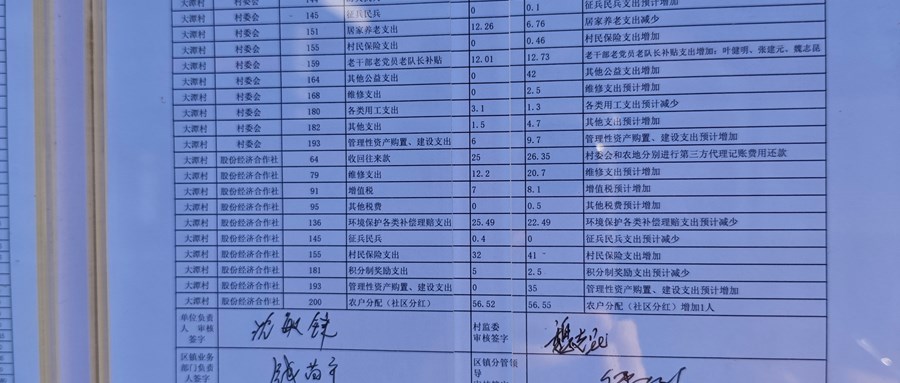 大潭村 村委会 144 0 0.1
大潭村 村委会 145 征兵民兵 0 0.1 征兵民兵支出预计增加
大潭村 村委会 151 居家养老支出 12.26 6.76 居家养老支出减少
大潭村 村委会 155 村民保险支出 0 0.46 村民保险支出增加
大潭村 村委会 159 老干部老党员老队长补贴 12.01 12.73 老干部老党员老队长补贴支出增加：叶健明、张建元、魏志昆
大潭村 村委会 164 其他公益支出 0 42 其他公益支出增加
大潭村 村委会 168 维修支出 0 2.5 维修支出预计增加
大潭村 村委会 180 各类用工支出 3.1 1.3 各类用工支出预计减少
大潭村 村委会 182 其他支出 1.5 4.7 其他支出预计增加
大潭村 村委会 193 管理性资产购置、建设支出 6 9.7 管理性资产购置、建设支出预计增加
大潭村 股份经济合作社 64 收回往来款 25 26.35 村委会和农地分别进行第三方代理记账费用还款
大潭村 股份经济合作社 79 维修支出 12.2 20.7 维修支出预计增加
大潭村 股份经济合作社 91 增值税 7 8.1 增值税预计增加
大潭村 股份经济合作社 95 其他税费 0 0.5 其他税费预计增加
大潭村 股份经济合作社 136 环境保护各类补偿理赔支出 25.49 22.49 环境保护各类补偿理赔支出预计减少
大潭村 股份经济合作社 145 征兵民兵 0.4 0 征兵民兵支出预计减少
大潭村 股份经济合作社 155 村民保险支出 32 41 村民保险支出增加
大潭村 股份经济合作社 181 积分制奖励支出 5 2.5 积分制奖励支出预计减少
大潭村 股份经济合作社 193 管理性资产购置、建设支出 0 35 管理性资产购置、建设支出预计增加
大潭村 股份经济合作社 200 农户分配（社区分红） 56.52 56.55 农户分配（社区分红）增加1人
单位负责人 审核签字 沈敏镜 村监委审核签字 魏志昆
区镇业务部门负责人签字 区镇分管领导